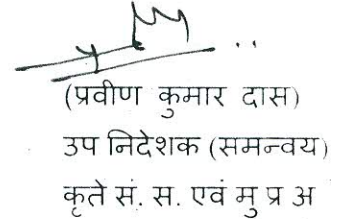 (प्रवीण कुमार दास)
उप निदेशक (समन्वय)
कृते सं. स. एवं मु प्र अ